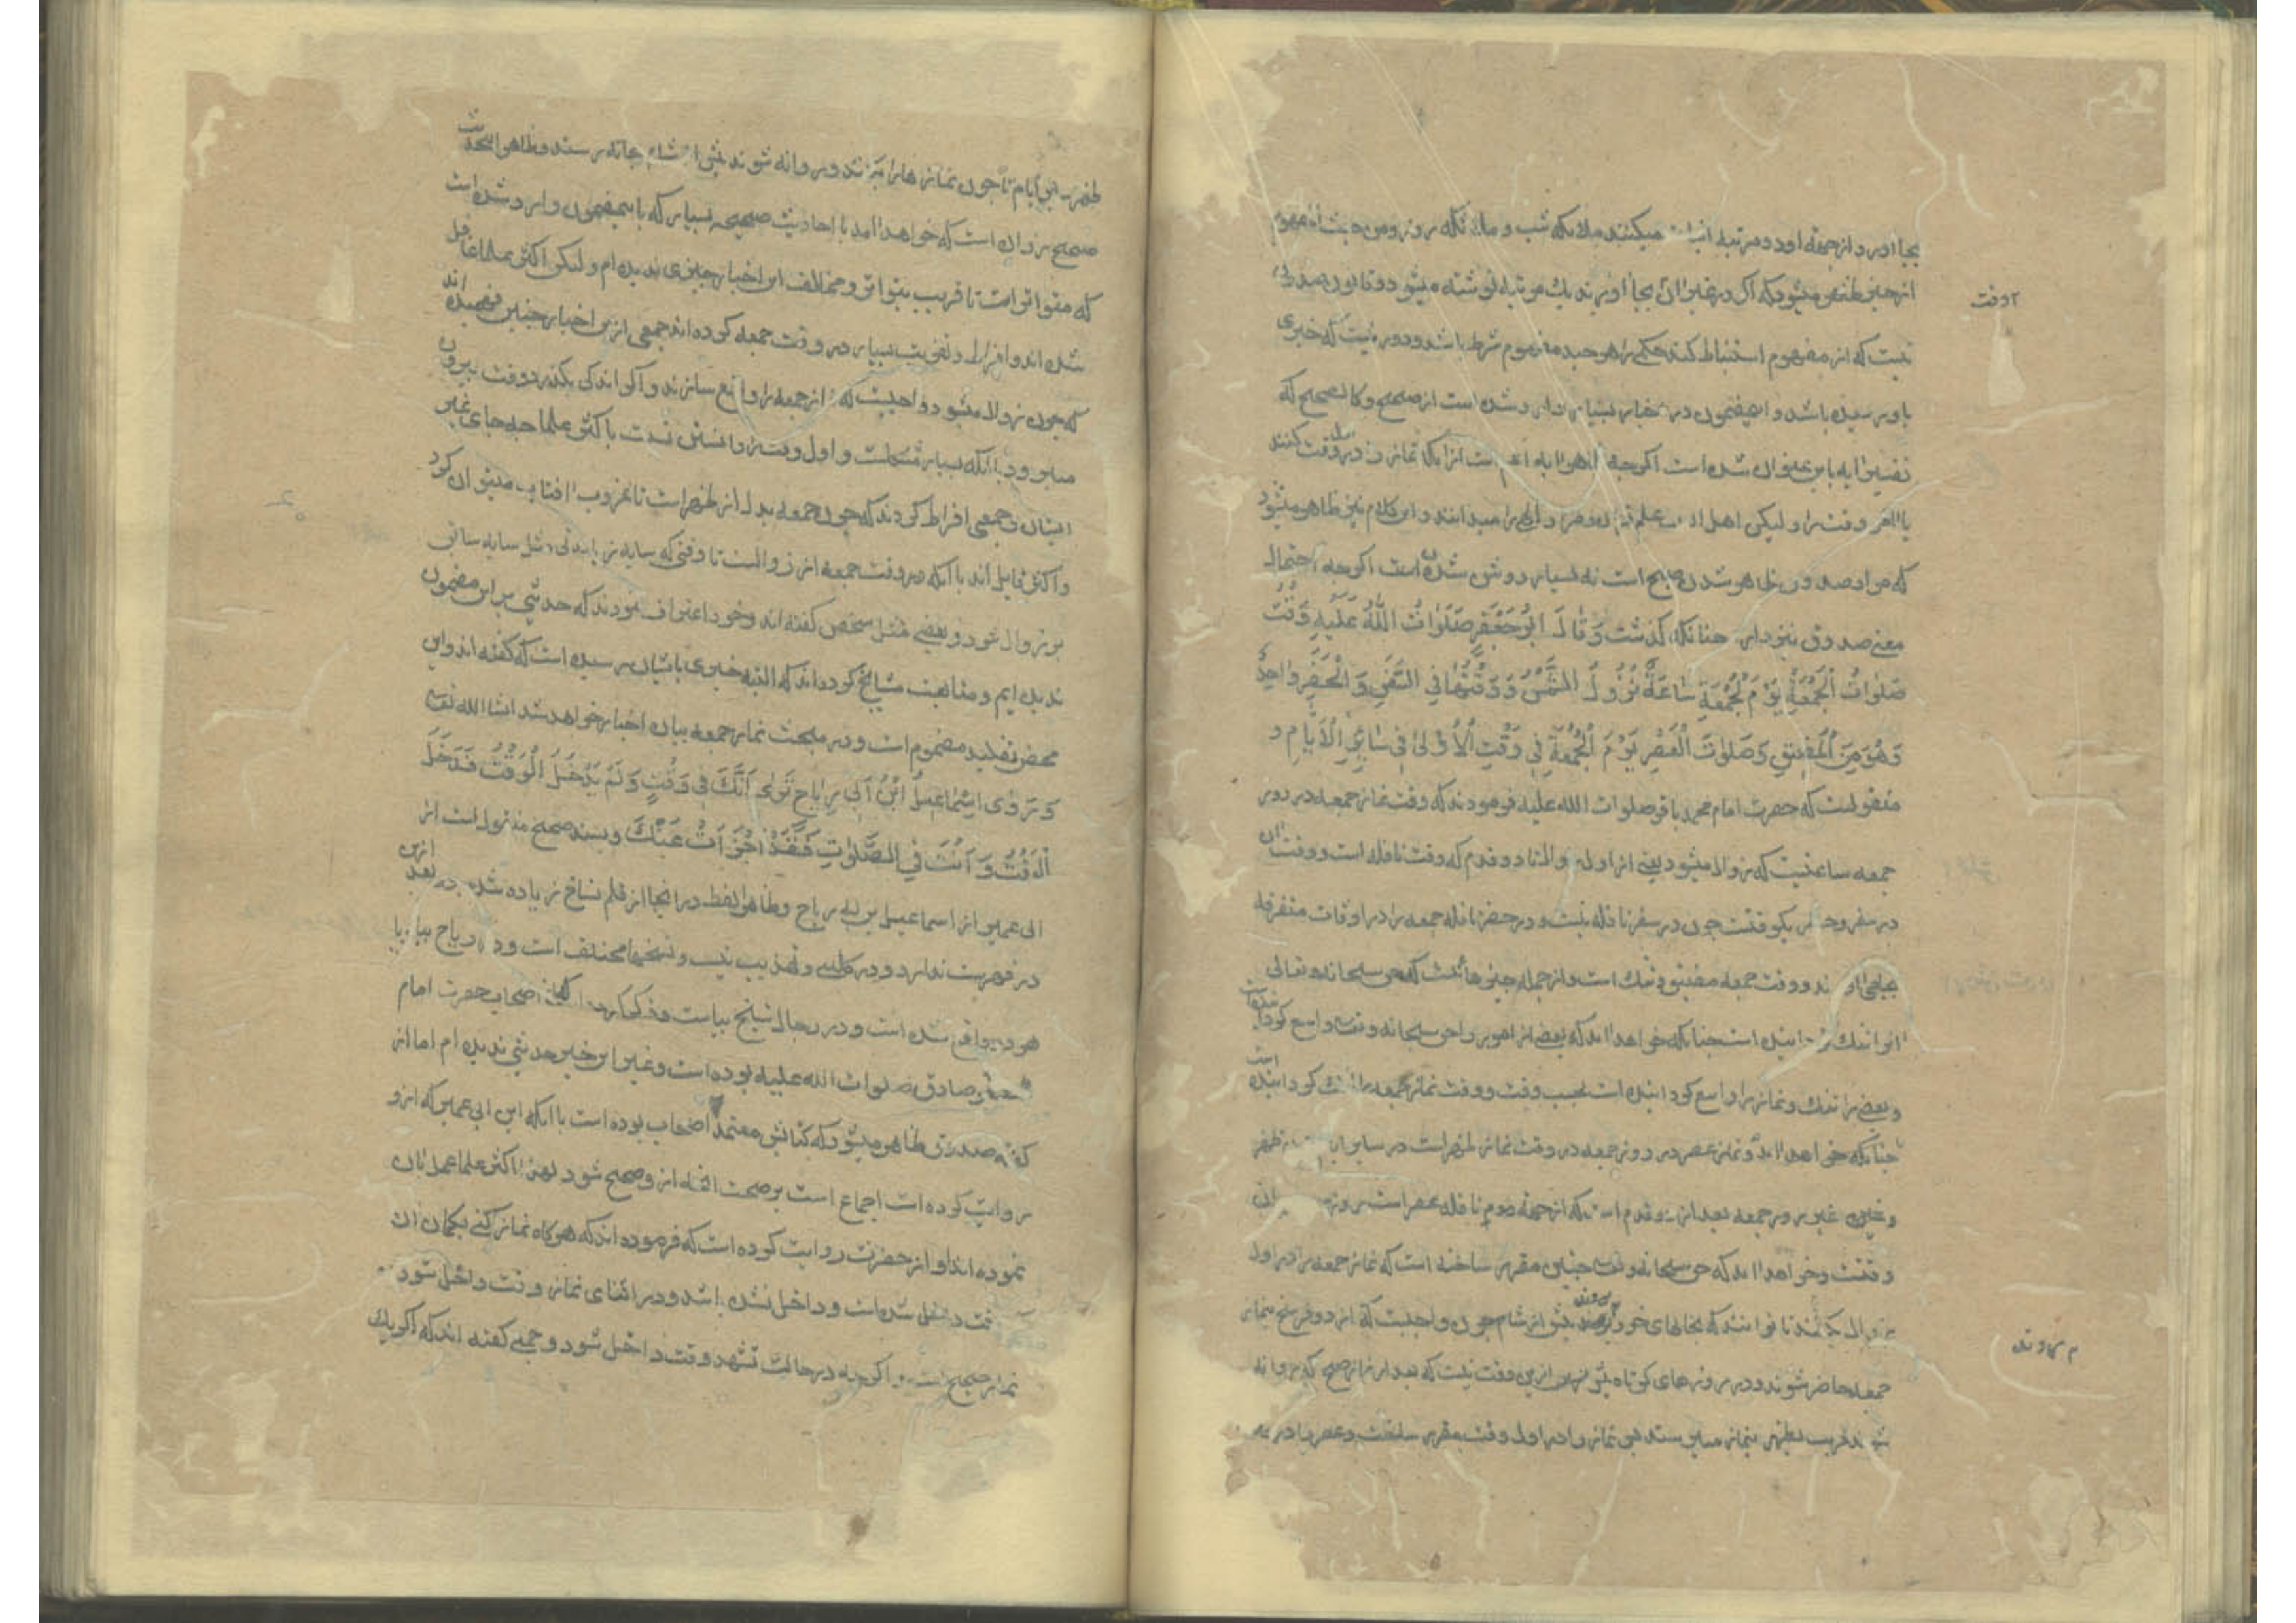 بجا آورد از جمعه او دو مرتبه میکنند ملائکه شب و ملائکه روز و من حیث المفهوم
ازین ظاهر میشود که اگر در غیر آن بجا آورند یک مرتبه نوشته میشود و قانون صدوق
۲ وقت
نیست که از مفهوم استنباط کند حکمی را هر چند مفهوم شرط باشد و دور نیست که خبری
باو رسیده باشد و این مضمون در اخبار بسیار وارد شده است از صحیح و کالصحیح که
تفسیر آیه باین عنوان شده است اگرچه ظاهر آیه اعم است از آنکه نماز را در اول وقت کنند
یا آخر وقت را و لیکن اهل علم قرآن و مراد الهی را میدانند و این کلام نیز ظاهر میشود
که مراد صدوق ظاهر شدن صبح است نه بسیار روشن شدن است اگرچه احتمال
معنی صدوق نیز دارد چنانکه گذشت وَقَالَ اَبُو جَعْفَرٍ صَلَوٰاتُ اللّٰهِ عَلَيْهِ وَقْتُ
صَلوٰاتُ الْجُمُعَةِ يَوْمَ الْجُمُعَةِ سَاعَةُ تَزُولُ الشَّمْسُ وَ وَقْتُهَا فِي السَّفَرِ وَ الْحَضَرِ وٰاحِدٌ
وَهُوَ مِنَ الْمَضِيقِ وَصَلوٰةُ الْعَصْرِ يَوْمَ الْجُمُعَةِ فِي وَقْتِ الْاُوْلىٰ فِي سَائِرِ الْاَيَّامِ و
منقولست که حضرت امام محمد باقر صلوات الله علیه فرمودند که وقت نماز جمعه در روز
جمعه ساعتیست که زوال میشود یعنی از اول زوالست تا دو قدم که وقت نافله است و وقت آن
در سفر و حضر یکوقتست چون در سفر نافله نیست و در حضر نافله جمعه را در اوقات متفرقه
بجا می آورند و وقت جمعه مضیق و تنک است و از جمله چیزهائیست که حق سبحانه و تعالی
آنرا تنک گردانیده است چنانکه خواهد آمد که بعضی از امور را حق سبحانه و تعالی واسع گردانیده است
و بعضی را تنک و نماز را واسع گردانیده است بحسب وقت و وقت نماز جمعه را تنک گردانیده است
چنانکه خواهد آمد و نماز عصر در روز جمعه در وقت نماز ظهر است در سایر ایام نماز ظهر
و غیر روز جمعه بعد از دو قدم است که از جهة دوم نافله عصر است
وقتست و خواهد آمد که حق سبحانه و تعالی چنین مقرر ساخته است که نماز جمعه را در اول
زوال بکنند تا توانند که بخانهای خود روند پیش از شام چون واجبست که از دو فرسخ بنماز
م روند
جمعه حاضر شوند و در روزهای کوتاه بهترین ازین وقت نیست که بعد از نماز صبح که روانه
شوند قریب بظهر بنماز میرسند پس نماز را در اول وقت مقرر ساخت و عصر را در
ظهر این ایام تا چون نمازها را بکنند و روانه شوند پیش از شام بخانه رسند و ظاهرا حدیث
صحیح زراره است که خواهد آمد با احادیث صحیحه بسیار که باین مضمون وارد شده است
که متواتر است تا قریب بتواتر و مخالف این اخبار چیزی ندیده ام و لیکن اکثر علما غافل
شده اند و افراط و تفریط بسیار در وقت جمعه کرده اند جمعی ازین اخبار چنین فهمیده اند
که چون زوال میشود واجبست که نماز جمعه را واقع سازند و اگر اندکی بگذرد وقت بیرون
میرود با آنکه بسیار مشکلست و اول وقت را دانستن نیست با کثر علما چه جای غیر
ایشان و جمعی افراط کردند که چون جمعه بدل از ظهر است تا غروب آفتاب میتوان کرد
و اکثر قایل اند با آنکه در وقت جمعه از زوالست تا وقتی که سایه زیادتی مثل سایه
بر زوال شود و بعضی مثل شخص گفته اند و خود اعتراف نمودند که حدیثی بر این مضمون
ندیده ایم و متابعت مشایخ کرده اند که البته خبری بایشان رسیده است که گفته اند و این
محض تقلید مذموم است و در مبحث نماز جمعه بیان اخبار خواهد شد انشاالله تعالی
وَ رَوٰى اِسْمَاعِيلُ ابْنُ اَبِي رِبَاحٍ تَرىٰ اَنَّكَ فِي وَقْتٍ وَلَمْ يَدْخُلِ الْوَقْتُ فَدَخَلَ
الْوَقْتُ وَ اَنْتَ فِي الصَّلوٰةِ فَقَدْ اَجْزَأَتْ عَنْكَ و بسند صحیح منقول است از
ابی عمیر از اسماعیل بن ابی رباح و ظاهرا لفظ در اینجا از قلم نساخ زیاده شده بعد ازین
در فهرست ندارد و در کافی و تهذیب نیست و نسخها مختلف است و رباح بباء یا
هر دو واقع شده است و در رجال شیخ بیاست و ذکر کرده که از اصحاب حضرت امام
جعفر صادق صلوات الله علیه بوده است و غیر این خبر حدیثی ندیده ام اما از
گفته صدوق ظاهر میشود که کتابش معتمد اصحاب بوده است با آنکه ابن ابی عمیر که ازو
روایت کرده است اجماع است بر صحت آنچه ازو صحیح شود لهذا اکثر علما عمل بآن
نموده اند و از حضرت روایت کرده است که فرموده اند که هرگاه نماز کنی بگمان آن
وقت داخل شده است و داخل نشده باشد و در اثنای نماز وقت داخل شود
نماز صحیح است اگرچه در حالت تشهد وقت داخل شود و جمعی گفته اند که اگر یک